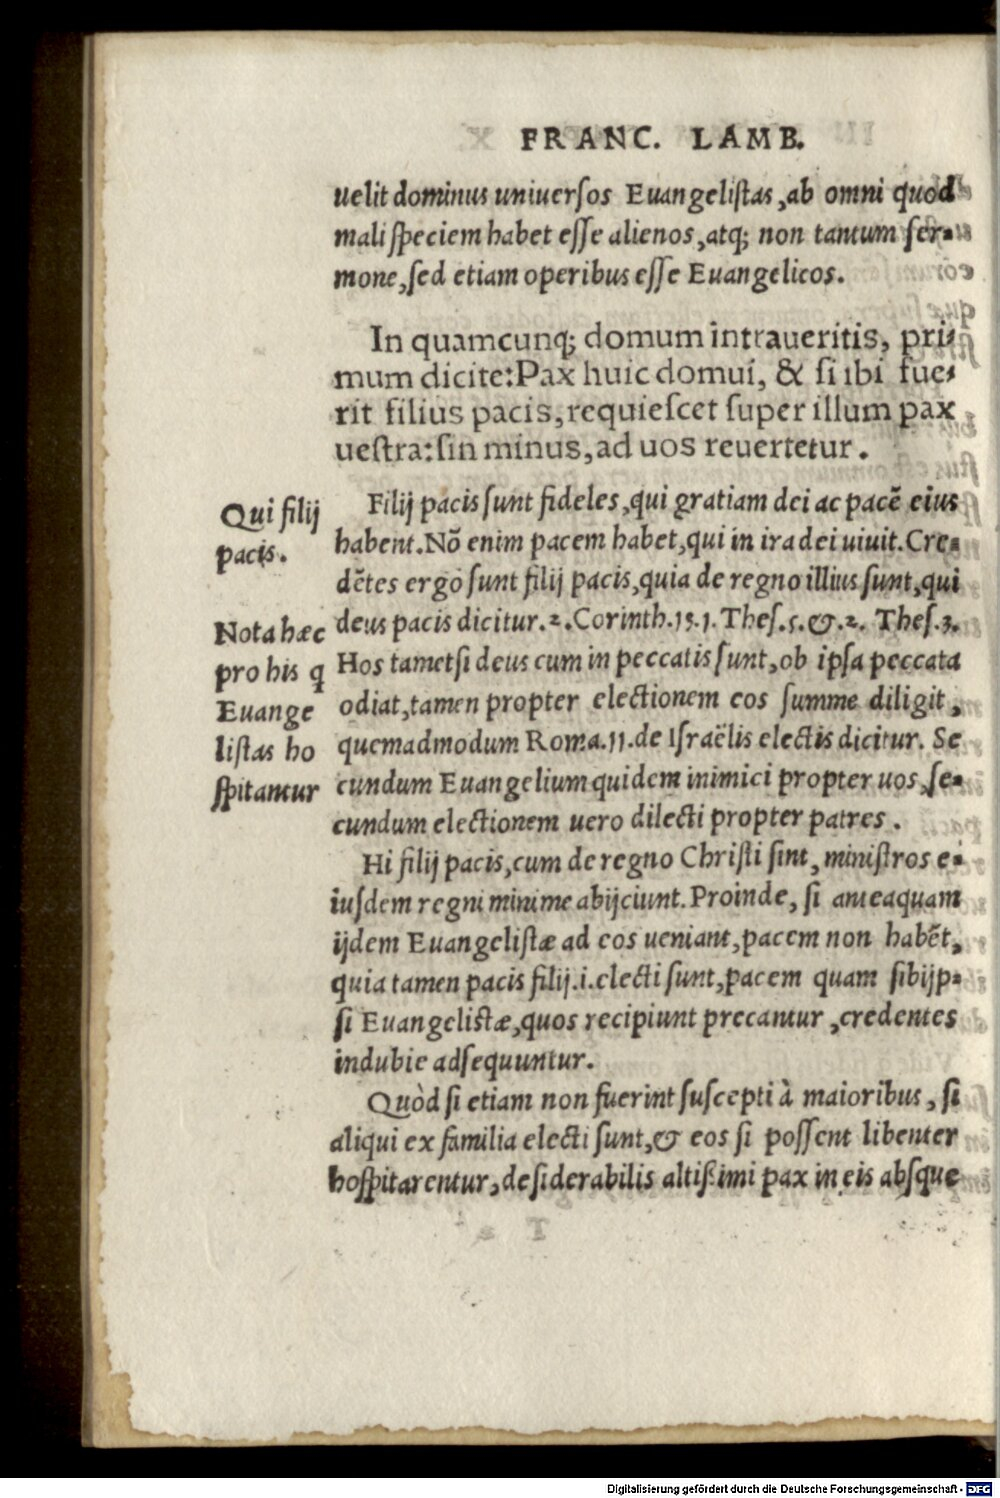 FRANC. LAMB.
uelit dominus uniuersos Euangelistas, ab omni quod
mali speciem habet esse alienos, atq; non tantum ser-
mone, sed etiam operibus esse Euangelicos.
In quamcunq; domum intraueritis, pri-
mum dicite: Pax huic domui, & si ibi fue-
rit filius pacis, requiescet super illum pax
uestra: sin minus, ad uos reuertetur.
Qui filij
pacis.
Filij pacis sunt fideles, qui gratiam dei ac pacẽ eius
habent. Nõ enim pacem habet, qui in ira dei uiuit. Cre-
dẽtes ergo sunt filij pacis, quia de regno illius sunt, qui
deus pacis dicitur. 2. Corinth. 13. 1. Thes. 5. & 2. Thes. 3.
Hos tametsi deus cum in peccatis sunt, ob ipsa peccata
odiat, tamen propter electionem eos summe diligit,
quemadmodum Roma. 11. de Israëlis electis dicitur. Se
cundum Euangelium quidem inimici propter uos, se-
cundum electionem uero dilecti propter patres.
Nota hæc
pro his q
Euange
listas ho
spitantur
Hi filij pacis, cum de regno Christi sint, ministros e-
iusdem regni minime abijciunt. Proinde, si anteaquam
ijdem Euangelistæ ad eos ueniant, pacem non habẽt,
quia tamen pacis filij .i. electi sunt, pacem quam sibijp-
si Euangelistæ, quos recipiunt precantur, credentes
indubie adsequuntur.
Quòd si etiam non fuerint suscepti à maioribus, si
aliqui ex familia electi sunt, & eos si possent libenter
hospitarentur, desiderabilis altißimi pax in eis absque
Digitalisierung gefördert durch die Deutsche Forschungsgemeinschaft - DFG